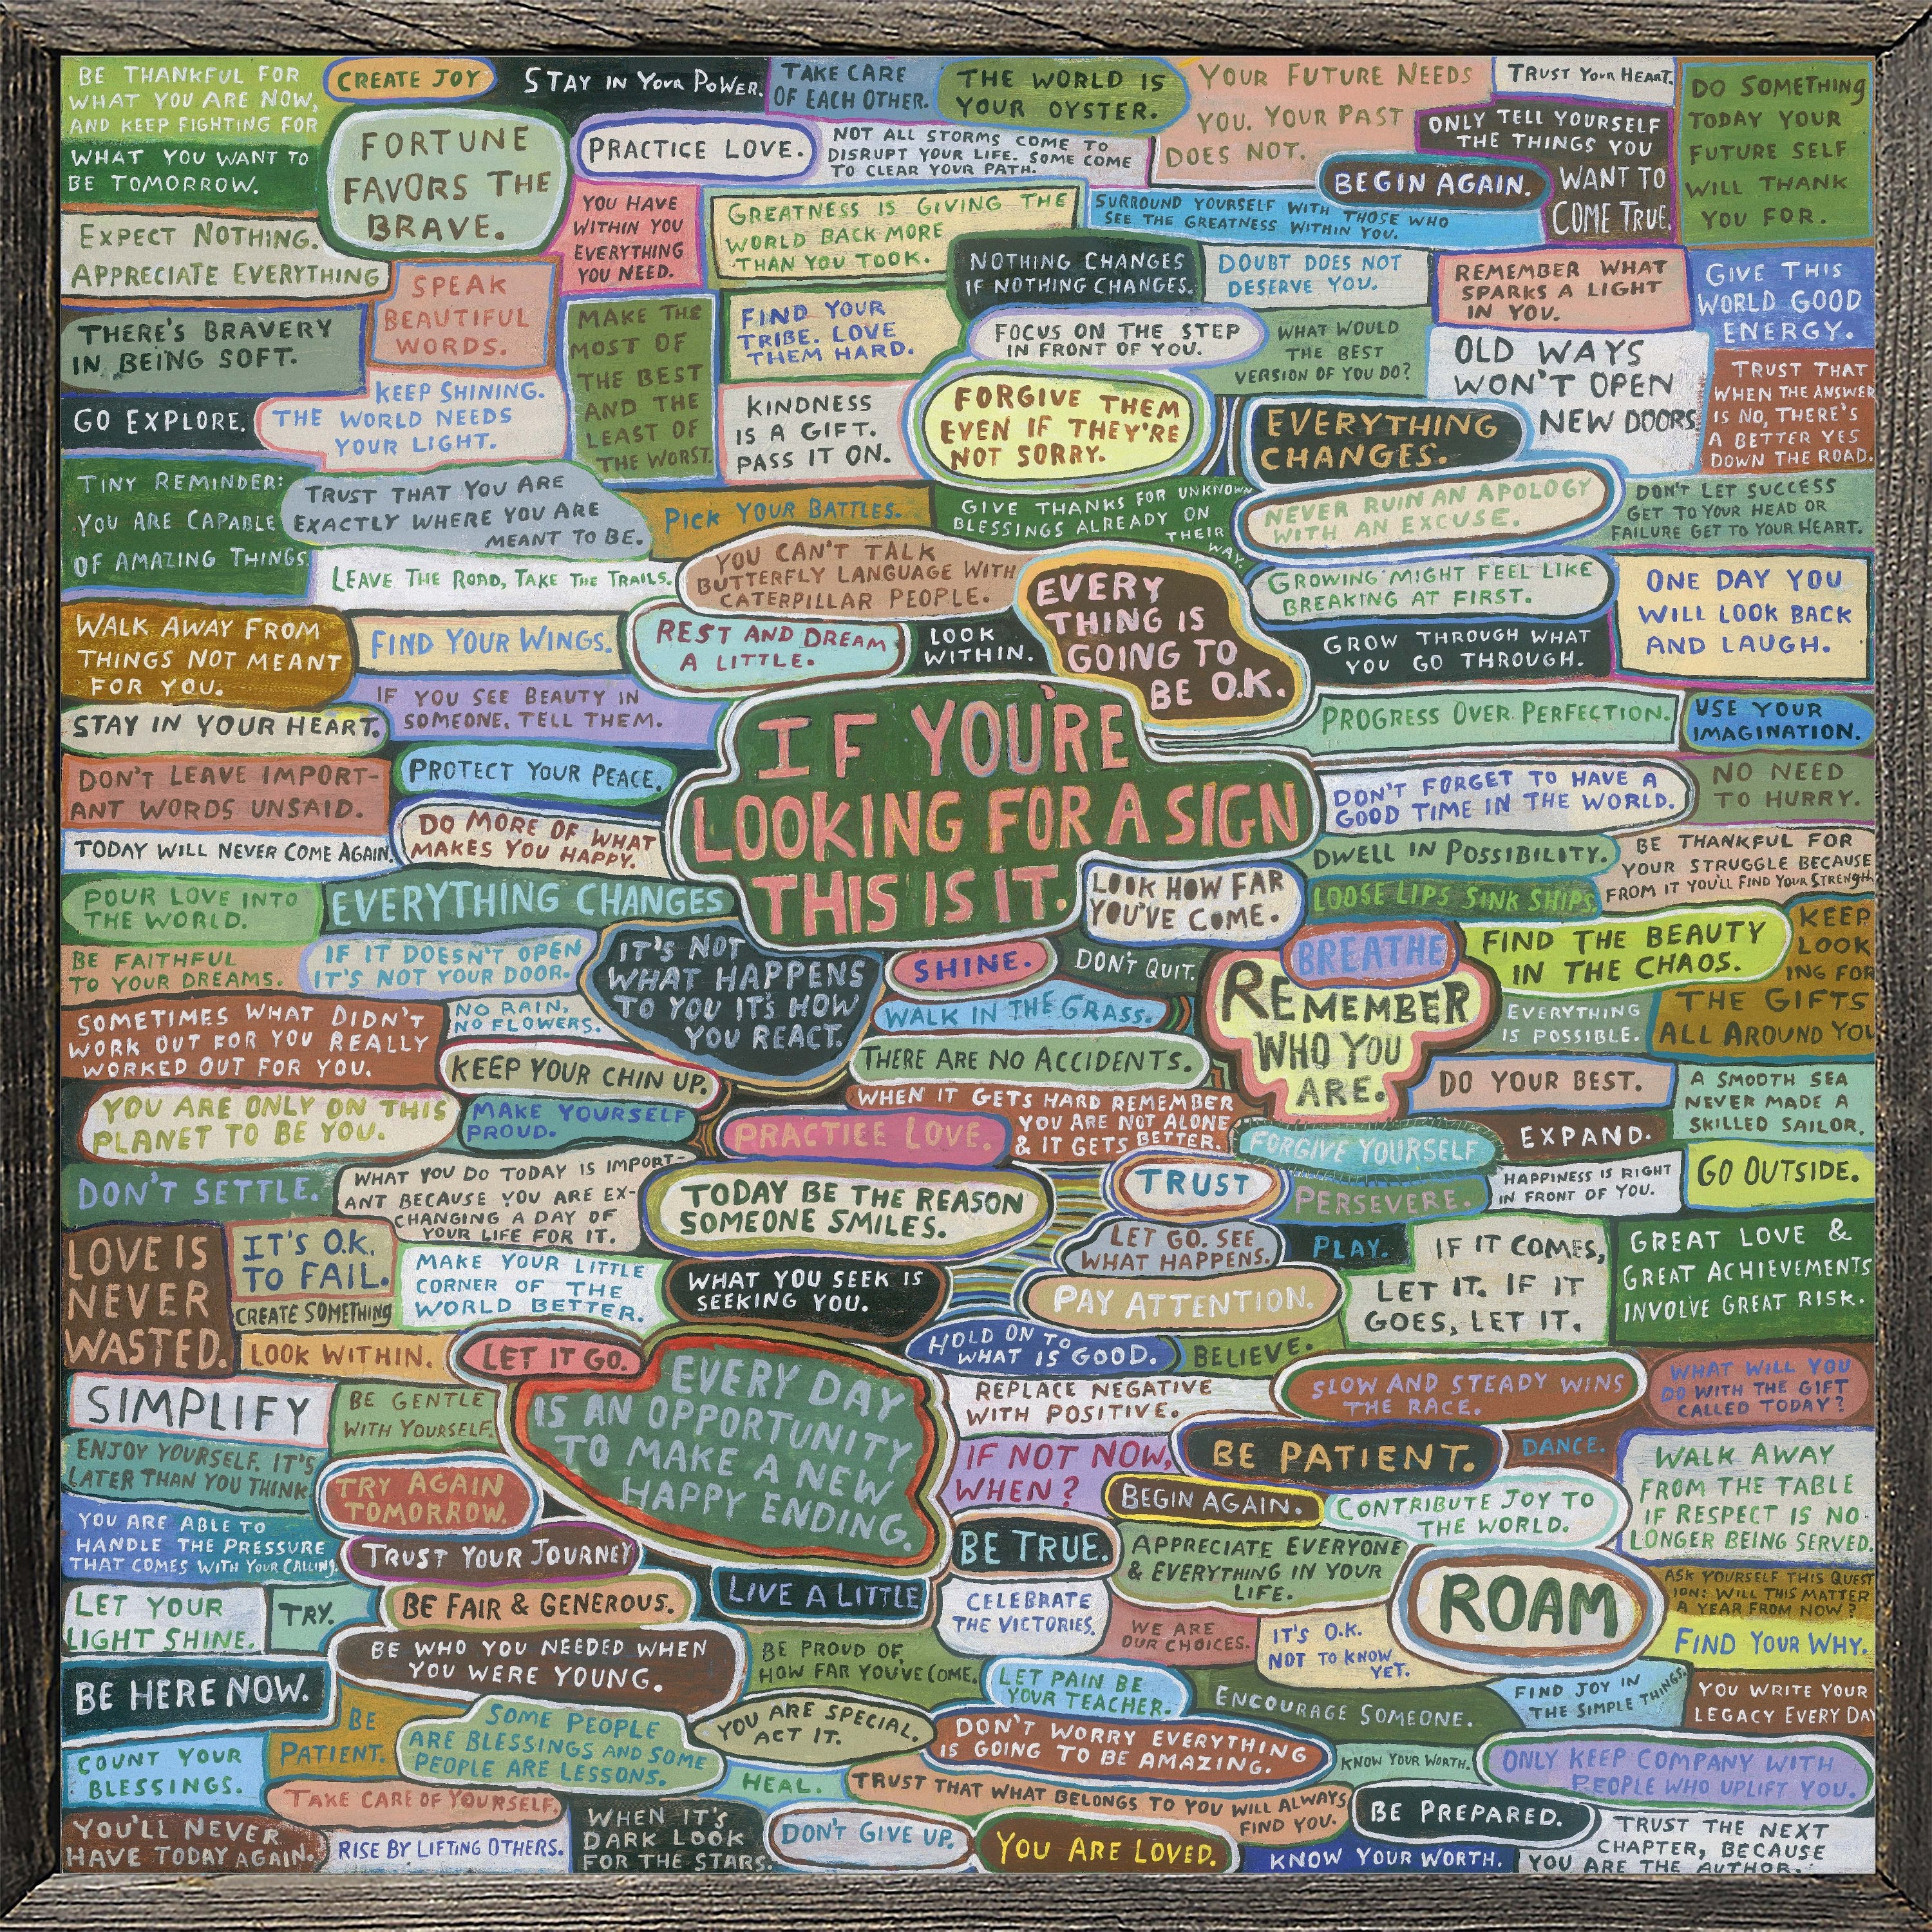 BE THANKFUL FOR
WHAT YOU ARE NOW,
AND KEEP FIGHTING FOR
WHAT YOU WANT TO
BE TOMORROW.
CREATE JOY
STAY IN YOUR POWER.
TAKE CARE
OF EACH OTHER.
THE WORLD IS
YOUR OYSTER.
YOUR FUTURE NEEDS
YOU. YOUR PAST
DOES NOT.
TRUST YOUR HEART.
DO SOMETHING
TODAY YOUR
FUTURE SELF
WILL THANK
YOU FOR.
FORTUNE
FAVORS THE
BRAVE.
PRACTICE LOVE.
NOT ALL STORMS COME TO
DISRUPT YOUR LIFE. SOME COME
TO CLEAR YOUR PATH.
ONLY TELL YOURSELF
THE THINGS YOU
WANT TO
COME TRUE.
BEGIN AGAIN.
EXPECT NOTHING.
APPRECIATE EVERYTHING
YOU HAVE
WITHIN YOU
EVERYTHING
YOU NEED.
GREATNESS IS GIVING THE
WORLD BACK MORE
THAN YOU TOOK.
SURROUND YOURSELF WITH THOSE WHO
SEE THE GREATNESS WITHIN YOU.
SPEAK
BEAUTIFUL
WORDS.
NOTHING CHANGES
IF NOTHING CHANGES.
DOUBT DOES NOT
DESERVE YOU.
REMEMBER WHAT
SPARKS A LIGHT
IN YOU.
GIVE THIS
WORLD GOOD
ENERGY.
THERE'S BRAVERY
IN BEING SOFT.
MAKE THE
MOST OF
THE BEST
AND THE
LEAST OF
THE WORST.
FIND YOUR
TRIBE. LOVE
THEM HARD.
FOCUS ON THE STEP
IN FRONT OF YOU.
WHAT WOULD
THE BEST
VERSION OF YOU DO?
OLD WAYS
WON'T OPEN
NEW DOORS.
TRUST THAT
WHEN THE ANSWER
IS NO, THERE'S
A BETTER YES
DOWN THE ROAD.
GO EXPLORE.
KEEP SHINING.
THE WORLD NEEDS
YOUR LIGHT.
KINDNESS
IS A GIFT.
PASS IT ON.
FORGIVE THEM
EVEN IF THEY'RE
NOT SORRY.
EVERYTHING
CHANGES.
TINY REMINDER:
YOU ARE CAPABLE
OF AMAZING THINGS.
TRUST THAT YOU ARE
EXACTLY WHERE YOU ARE
MEANT TO BE.
PICK YOUR BATTLES.
GIVE THANKS FOR UNKNOWN
BLESSINGS ALREADY ON
THEIR
WAY.
NEVER RUIN AN APOLOGY
WITH AN EXCUSE.
DON'T LET SUCCESS
GET TO YOUR HEAD OR
FAILURE GET TO YOUR HEART.
LEAVE THE ROAD, TAKE THE TRAILS.
YOU CAN'T TALK
BUTTERFLY LANGUAGE WITH
CATERPILLAR PEOPLE.
EVERY
THING IS
GOING TO
BE O.K.
GROWING MIGHT FEEL LIKE
BREAKING AT FIRST.
ONE DAY YOU
WILL LOOK BACK
AND LAUGH.
WALK AWAY FROM
THINGS NOT MEANT
FOR YOU.
FIND YOUR WINGS.
REST AND DREAM
A LITTLE.
LOOK
WITHIN.
GROW THROUGH WHAT
YOU GO THROUGH.
IF YOU SEE BEAUTY IN
SOMEONE, TELL THEM.
STAY IN YOUR HEART.
IF YOU'RE
LOOKING FOR A SIGN
THIS IS IT.
PROGRESS OVER PERFECTION.
USE YOUR
IMAGINATION.
DON'T LEAVE IMPORT-
ANT WORDS UNSAID.
PROTECT YOUR PEACE.
DON'T FORGET TO HAVE A
GOOD TIME IN THE WORLD.
NO NEED
TO HURRY.
TODAY WILL NEVER COME AGAIN.
DO MORE OF WHAT
MAKES YOU HAPPY.
DWELL IN POSSIBILITY.
BE THANKFUL FOR
YOUR STRUGGLE BECAUSE
FROM IT YOU'LL FIND YOUR STRENGTH
POUR LOVE INTO
THE WORLD.
EVERYTHING CHANGES
LOOK HOW FAR
YOU'VE COME.
LOOSE LIPS SINK SHIPS.
BE FAITHFUL
TO YOUR DREAMS.
IF IT DOESN'T OPEN
IT'S NOT YOUR DOOR.
IT'S NOT
WHAT HAPPENS
TO YOU IT'S HOW
YOU REACT.
SHINE.
DON'T QUIT.
BREATHE
FIND THE BEAUTY
IN THE CHAOS.
KEEP
LOOK
ING FOR
THE GIFTS
ALL AROUND YOU
SOMETIMES WHAT DIDN'T
WORK OUT FOR YOU REALLY
WORKED OUT FOR YOU.
NO RAIN,
NO FLOWERS.
WALK IN THE GRASS.
REMEMBER
WHO YOU
ARE.
EVERYTHING
IS POSSIBLE.
KEEP YOUR CHIN UP.
THERE ARE NO ACCIDENTS.
DO YOUR BEST.
A SMOOTH SEA
NEVER MADE A
SKILLED SAILOR.
YOU ARE ONLY ON THIS
PLANET TO BE YOU.
MAKE YOURSELF
PROUD.
PRACTICE LOVE.
WHEN IT GETS HARD REMEMBER
YOU ARE NOT ALONE
& IT GETS BETTER.
FORGIVE YOURSELF
EXPAND.
DON'T SETTLE.
WHAT YOU DO TODAY IS IMPORT-
ANT BECAUSE YOU ARE EX-
CHANGING A DAY OF
YOUR LIFE FOR IT.
TODAY BE THE REASON
SOMEONE SMILES.
TRUST
PERSEVERE.
HAPPINESS IS RIGHT
IN FRONT OF YOU.
GO OUTSIDE.
LOVE IS
NEVER
WASTED.
IT'S O.K.
TO FAIL.
CREATE SOMETHING
MAKE YOUR LITTLE
CORNER OF THE
WORLD BETTER.
WHAT YOU SEEK IS
SEEKING YOU.
LET GO. SEE
WHAT HAPPENS.
PLAY.
IF IT COMES,
LET IT. IF IT
GOES, LET IT.
GREAT LOVE &
GREAT ACHIEVEMENTS
INVOLVE GREAT RISK.
PAY ATTENTION.
LOOK WITHIN.
LET IT GO.
HOLD ON TO
WHAT IS GOOD.
BELIEVE.
SIMPLIFY
BE GENTLE
WITH YOURSELF.
EVERY DAY
IS AN OPPORTUNITY
TO MAKE A NEW
HAPPY ENDING.
REPLACE NEGATIVE
WITH POSITIVE.
SLOW AND STEADY WINS
THE RACE.
WHAT WILL YOU
DO WITH THE GIFT
CALLED TODAY?
ENJOY YOURSELF. IT'S
LATER THAN YOU THINK
TRY AGAIN
TOMORROW.
IF NOT NOW,
WHEN?
BE PATIENT.
DANCE.
WALK AWAY
FROM THE TABLE
IF RESPECT IS NO
LONGER BEING SERVED.
BEGIN AGAIN.
CONTRIBUTE JOY TO
THE WORLD.
YOU ARE ABLE TO
HANDLE THE PRESSURE
THAT COMES WITH YOUR CALLING.
TRUST YOUR JOURNEY
BE TRUE.
APPRECIATE EVERYONE
& EVERYTHING IN YOUR
LIFE.
ROAM
ASK YOURSELF THIS QUEST
ION: WILL THIS MATTER
A YEAR FROM NOW?
LET YOUR
LIGHT SHINE.
TRY.
BE FAIR & GENEROUS.
LIVE A LITTLE
CELEBRATE
THE VICTORIES.
WE ARE
OUR CHOICES.
IT'S O.K.
NOT TO KNOW
YET.
FIND YOUR WHY.
BE WHO YOU NEEDED WHEN
YOU WERE YOUNG.
BE PROUD OF
HOW FAR YOU'VE COME.
BE HERE NOW.
LET PAIN BE
YOUR TEACHER.
ENCOURAGE SOMEONE.
FIND JOY IN
THE SIMPLE THINGS.
YOU WRITE YOUR
LEGACY EVERY DAY
BE
PATIENT.
SOME PEOPLE
ARE BLESSINGS AND SOME
PEOPLE ARE LESSONS.
YOU ARE SPECIAL.
ACT IT.
DON'T WORRY EVERYTHING
IS GOING TO BE AMAZING.
KNOW YOUR WORTH.
ONLY KEEP COMPANY WITH
PEOPLE WHO UPLIFT YOU.
COUNT YOUR
BLESSINGS.
TAKE CARE OF YOURSELF.
HEAL.
TRUST THAT WHAT BELONGS TO YOU WILL ALWAYS
FIND YOU.
BE PREPARED.
YOU'LL NEVER
HAVE TODAY AGAIN.
RISE BY LIFTING OTHERS.
WHEN IT'S
DARK LOOK
FOR THE STARS.
DON'T GIVE UP.
YOU ARE LOVED.
KNOW YOUR WORTH.
TRUST THE NEXT
CHAPTER, BECAUSE
YOU ARE THE AUTHOR.